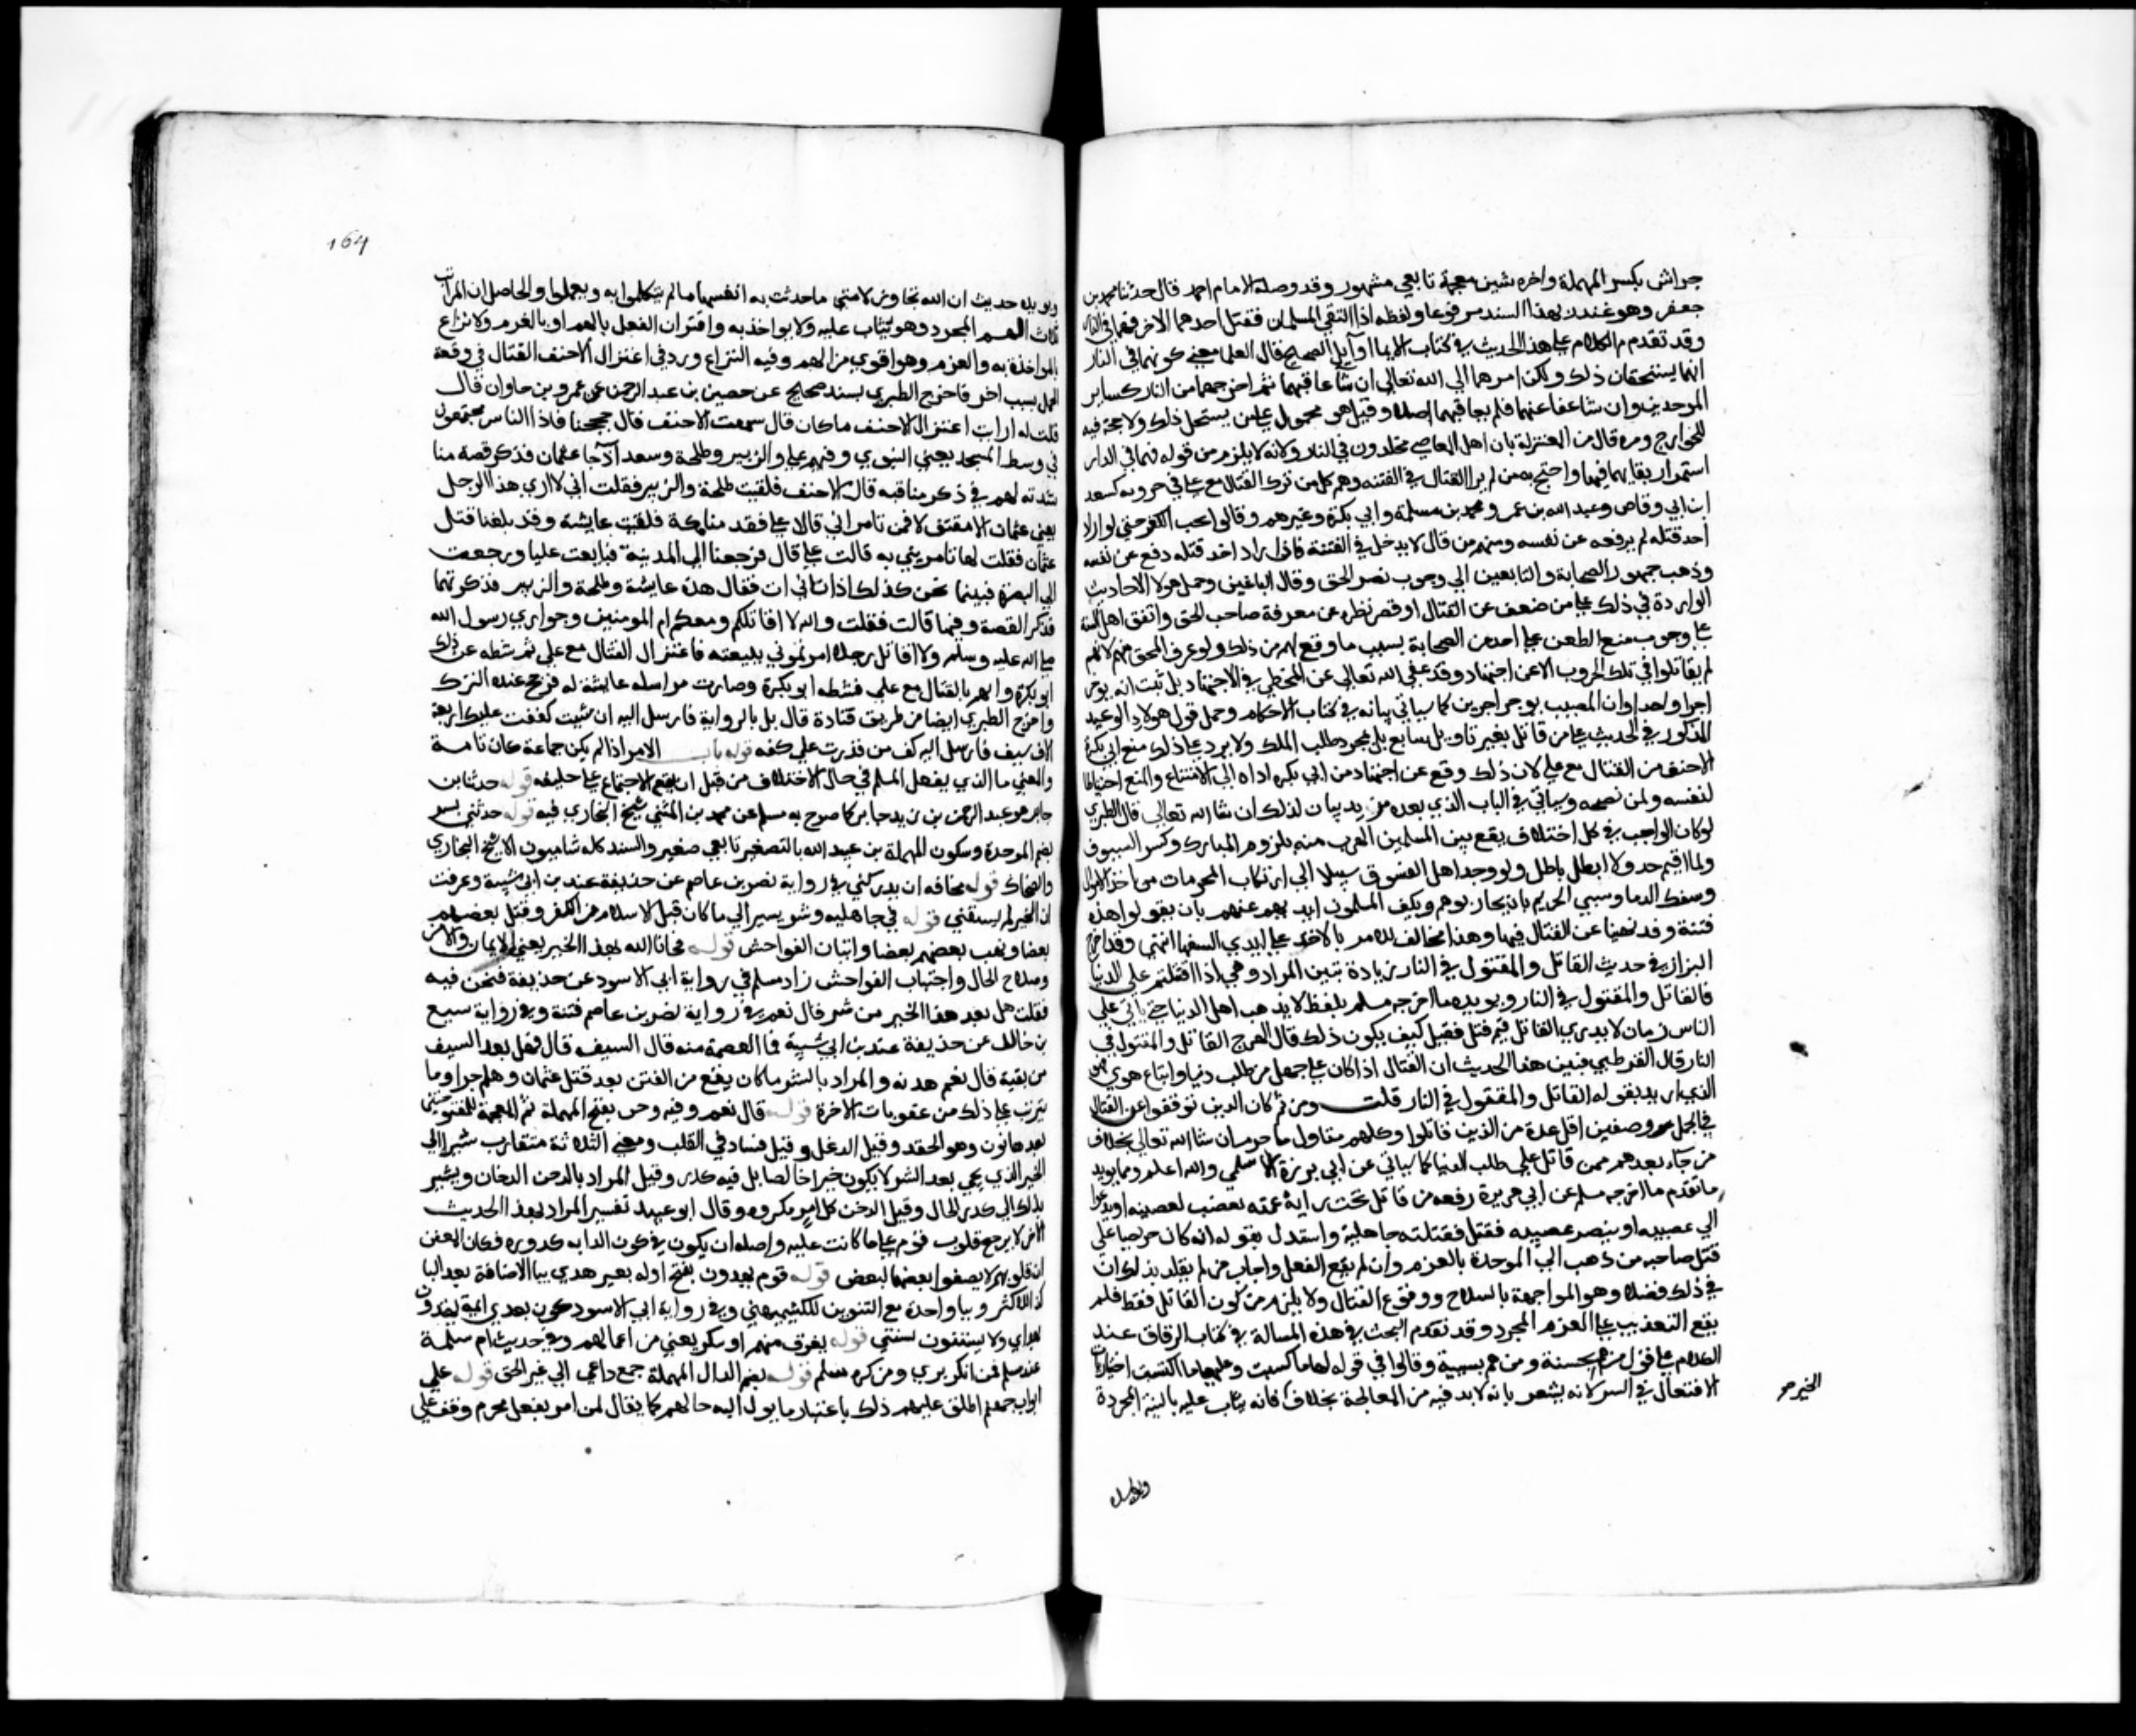 حراش بكسر المهملة واخره شين معجمة تابعي مشهور وقد وصله الامام احمد قال حدثنا محمد بن
جعفر وهو غندر بهذا السند مرفوعا ولفظه اذا التقى المسلمان فقتل احدهما الاخر فهما في النار
وقد تقدم الكلام على هذا الحديث في كتاب الايمان اوايل الصحيح قال العلما معنى كونهما في النار
انهما يستحقان ذلك ولكن امرهما الي الله تعالى ان شا عاقبهما ثم اخرجهما من النار كساير
الموحدين وان شا عفا عنهما فلم يعاقبهما اصلا وقيل هو محمول على من يستحل ذلك ولا حجة فيه
للخوارج ومن قال من المعتزلة بان اهل المعاصي مخلدون في النار ولانه لا يلزم من قوله فهما في النار
استمرار بقايهما فيها واحتج به من لم ير القتال في الفتنه وهم كل من ترك القتال مع علي في حروبه كسعد
ابن ابي وقاص وعبد الله بن عمر ومحمد بن مسلمة وابي بكرة وغيرهم وقالوا يجب الكف حتى لو اراد
احد قتله لم يدفعه عن نفسه ومنهم من قال لا يدخل في الفتنة فاذا اراد احد قتله دفع عن نفسه
وذهب جمهور الصحابة والتابعين الي وجوب نصر الحق وقتال الباغين وحمل هولا الاحاديث
الواردة في ذلك على من ضعف عن القتال او قصر نظره عن معرفة صاحب الحق واتفق اهل السنة
على وجوب منع الطعن على احد من الصحابة بسبب ما وقع لهم من ذلك ولو عرف المحق منهم لانهم
لم يقاتلوا في تلك الحروب الا عن اجتهاد وقد عفى الله تعالى عن المخطي في الاجتهاد بل ثبت انه يوجر
اجرا واحدا وان المصيب يوجر اجرين كما سياتي بيانه في كتاب الاحكام وحمل قول هولا الوعيد
المذكور في الحديث على من قاتل بغير تاويل سايغ بل بمجرد طلب الملك ولا يرد على ذلك منع ابي بكرة
الاحنف من القتال مع علي لان ذلك وقع عن اجتهاد من ابي بكره اداه الى الامتناع والمنع احتياطا
لنفسه ولمن نصحه وسياتي في الباب الذي بعده مزيد بيان لذلك ان شا الله تعالى قال الطبري
لو كان الواجب في كل اختلاف يقع بين المسلمين الهرب منه بلزوم المبارك وكسر السيوف
ولما اقيم حد ولا ابطل باطل ولوجد اهل الفسوق سبيلا الى ارتكاب المحرمات من اخذ الاموال
وسفك الدما وسبي الحريم بان يحاربوهم ويكف المسلمون ايديهم عنهم بان يقولوا هذه
فتنة وقد نهينا عن القتال فيها وهذا مخالف للامر بالاخذ على ايدي السفها انتهى وقد اخرج
البزار في حديث القاتل والمقتول في النار زيادة تبين المراد وهي اذا اقتتلتم على الدنيا
فالقاتل والمقتول في النار ويويده ما اخرجه مسلم بلفظ لا يذهب اهل الدنيا حتى ياتي على
الناس زمان لا يدري القاتل فيم قتل فقيل كيف يكون ذلك قال الهرج القاتل والمقتول في
النار قال القرطبي فبين هذا الحديث ان القتال اذا كان على جهل من طلب دنيا او اتباع هوي فهو
الذي اريد بقوله القاتل والمقتول في النار قلت ومن ثم كان الذين توقفوا عن القتال
في الجمل وصفين اقل عددا من الذين قاتلوا وكلهم متاول ماجور ان شا الله تعالى بخلاف
من جاء بعدهم ممن قاتل على طلب الدنيا كما سياتي عن ابي برزة الاسلمي والله اعلم ومما يويد
ما تقدم ما اخرجه مسلم عن ابي هريرة رفعه من قاتل تحت راية عمية يغضب لعصبية او يدعوا
الي عصبيه او ينصر عصبيه فقتل فقتلته جاهلية واستدل بقوله انه كان حريصا على
قتل صاحبه من ذهب الي الموحدة بالعزم وان لم يقع الفعل واجاب من لم يقل بذلك ان
في ذلك فعلا وهو المواجهة بالسلاح ووقوع القتال ولا يلزم من كون القاتل فقط فلم
يقع التعذيب على العزم المجرد وقد تقدم البحث في هذه المسالة في كتاب الرقاق عند
الكلام على قوله من هم بحسنة ومن هم بسيية وقالوا في قوله لها ما كسبت وعليها ما اكتسبت اختيار
الافتعال في الشر لانه يشعر بانه لا بد فيه من المعالجة بخلاف فانه يثاب عليه بالنية المجردة
الخير صح
ويويده
164
ويويده حديث ان الله تجاوز لامتي ما حدثت به انفسها ما لم يتكلموا به ويعملوا والحاصل ان المراتب
ثلاث الهم المجرد وهو يثاب عليه ولا يواخذ به واقتران الفعل بالهم او بالعزم ولا نزاع
في المواخذة به والعزم وهو اقوي من الهم وفيه النزاع ورد في اعتزال الاحنف القتال في وقعة
الجمل سبب اخر فاخرج الطبري بسند صحيح عن حصين بن عبد الرحمن عن عمرو بن جاوان قال
قلت له ارايت اعتزال الاحنف ما كان قال سمعت الاحنف قال حججنا فاذا الناس مجتمعون
في وسط المسجد يعني النبوي وفيهم علي والزبير وطلحة وسعد اذ جا عثمان فذكر قصة منا
شدته لهم في ذكر مناقبه قال الاحنف فلقيت طلحة والزبير فقلت اني لا اري هذا الرجل
يعني عثمان الا مقتولا فمن تامراني قالا علي فقدمنا مكة فلقيت عايشة وقد بلغنا قتل
عثمان فقلت لها من تامريني به قالت علي قال فرجعنا الى المدينة فبايعت عليا ورجعت
الي البصرة فبينما نحن كذلك اذ اتاني ات فقال هذه عايشة وطلحة والزبير فذكر نحوها
فذكر القصة وفيها قالت فقلت والله لا اقاتلكم ومعكم ام المومنين وحواري رسول الله
صلى الله عليه وسلم ولا اقاتل رجلا امرتموني ببيعته فاعتزل القتال مع علي ثم ثبطه عن ذلك
ابو بكرة واهم بالقتال مع علي فثبطه ابو بكرة وصارت مراسله عايشة له فرجح عنده الترك
واخرج الطبري ايضا من طريق قتادة قال بل بالرواية فارسل اليه ان شيت كففت عليك اربعة
الاف سيف فارسل اليه كف من قدرت على كفه قوله باب الامر اذا لم يكن جماعة كان تامة
والمعني ما الذي يفعل المسلم في حال الاختلاف من قبل ان يقع الاجتماع على خليفة قوله حدثنا ابن
جابر هو عبد الرحمن بن يزيد جابر كما صرح به مسلم عن محمد بن المثني شيخ البخاري فيه قوله حدثني بسر
بضم الموحدة وسكون المهملة بن عبيد الله بالتصغير تابعي صغير والسند كله شاميون الا شيخ البخاري
والصحابي قوله مخافه ان يدركني في رواية نصر بن عاصم عن حذيفة عند بن ابي شيبة وعرفت
ان الخير لم يسبقني قوله في جاهليه وشر يشير الي ما كان قبل الاسلام من الكفر وقتل بعضهم
بعضا ونهب بعضهم بعضا واتيان الفواحش قوله فجانا الله بهذا الخير يعني الايمان والامن
وصلاح الحال واجتناب الفواحش زاد مسلم في رواية ابي الاسود عن حذيفة فنحن فيه
فقلت هل بعد هذا الخير من شر قال نعم في رواية نصر بن عاصم فتنة وفي رواية سبيع
بن خالد عن حذيفة عند بن ابي شيبة فما العصمة منه قال السيف قال فهل بعد السيف
من بقية قال نعم هدنه والمراد بالشر ما كان يقع من الفتن بعد قتل عثمان وهلم جرا وما
يترتب على ذلك من عقوبات الاخرة قوله قال نعم وفيه دخن بفتح المهملة ثم المعجمة المفتوحتين
بعدها نون وهو الحقد وقيل الدغل وقيل فساد في القلب ومعنى الثلاثة متقارب يشير الى
الخير الذي يجي بعد الشر لا يكون خيرا خالصا بل فيه كدر وقيل المراد بالدخن الدخان ويشير
بذلك الي كدر الحال وقيل الدخن كل امر مكروه وقال ابو عبيد تفسير المراد بهذا الحديث
الاخر لا يرجع قلوب قوم على ما كانت عليه واصله ان يكون في كون الدابه كدورة فكان المعني
ان قلوبهم لا يصفوا بعضها لبعض قوله قوم يهدون بفتح اوله بغير هدي بيا الاضافة بعد اليا
كذا للاكثر وبيا واحدة مع التنوين للكشميهني وفي رواية ابي الاسود يكون بعدي ايمة يهتدون
بهداي ولا يستنون بسنتي قوله تعرف منهم وتنكر يعني من اعمالهم وفي حديث ام سلمة
عند مسلم فمن انكر بري ومن كره سلم قوله بضم الدال المهملة جمع داعي الي غير الحق قوله على
ابواب جهنم اطلق عليهم ذلك باعتبار ما يول اليه حالهم كما يقال لمن امر بفعل محرم وقف على